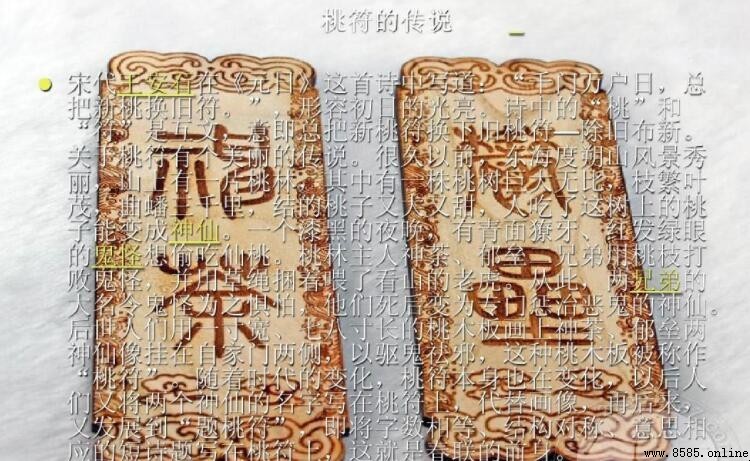 桃符的传说
宋代王安石在《元日》这首诗中写道：“千门万户日，总
把新桃换旧符。”，形容初日的光亮。诗中的“桃”和
“符”是互文，意即总把新桃符换下旧桃符—除旧布新。
关于桃符有个美丽的传说。很久以前，东海度朔山风景秀
丽，山上有一片桃林，其中有一株桃树巨大无比，枝繁叶
茂，曲蟠三千里，结的桃子又大又甜，人吃了这树上的桃
子能变成神仙。一个漆黑的夜晚，有青面獠牙、红发绿眼
的鬼怪想偷吃仙桃。桃林主人神荼、郁垒二兄弟用桃枝打
败鬼怪，并用草绳捆着喂了看山的老虎。从此，两兄弟的
大名令鬼怪为之惧怕，他们死后变为专门惩治恶鬼的神仙。
后世人们用一寸宽、七八寸长的桃木板画上神荼、郁垒两
神仙像挂在自家门两侧，以驱鬼祛邪，这种桃木板被称作
“桃符”。随着时代的变化，桃符本身也在变化，以后人
们又将两个神仙的名字写在桃符上，代替画像，再后来，
又发展到“题桃符”，即将字数相等、结构对称、意思相
应的短诗题写在桃符上，这就是春联的前身。
www.8585.online